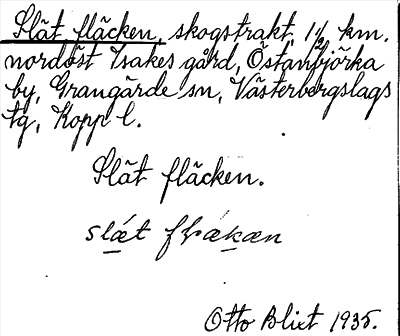 Slät fläcken, skogstrakt, 1½ km.
nordöst Isakes gård, Östanbjörka
by, Grangärde sn, Västerbergslags
tg, Kopp l.
Slät fläcken.
Otto Blixt 1935.